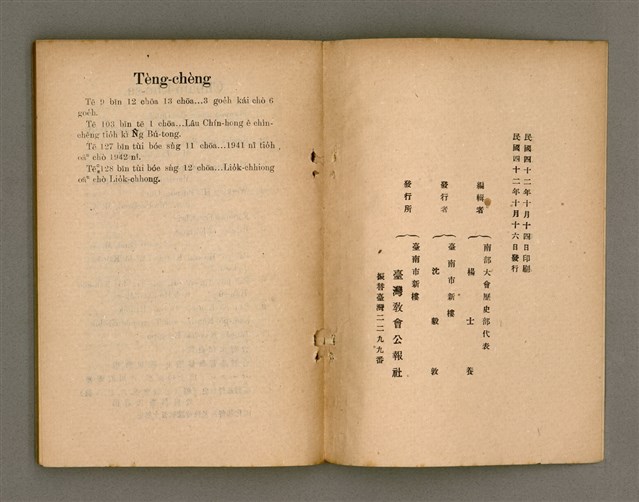 Tèng-chèng
Tē 9 bīn 12 chōa 13 chōa...3 goe̍h kái chò 6
goe̍h.
Tē 103 bīn tē 1 chōa...Lâu Chín-hong ê chìn-
chêng tio̍h kì N̂g Bú-tong.
Tē 127 bīn tùi bóe sǹg 11 chōa...1941 nî tio̍h
oāⁿ chò 1942 nî.
Tē 128 bīn tùi bóe sǹg 12 chōa...Lio̍k-chhiong
oāⁿ chò Lio̍k-chhong.
民國四十二年十月十四日印刷
民國四十二年十月十六日發行
編輯者
南部大會歷史部代表
楊士養
發行者
臺南市新樓
沈毅敦
發行所
臺南市新樓
臺灣敎會公報社
振替臺灣二二九九番